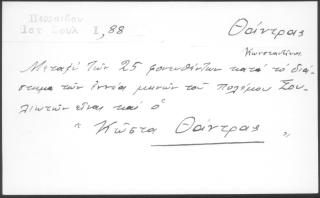 Περραιβού
Ιστ Σουλ Ι,88
Θάντρας
Κωνσταντίνος
Μεταξύ των 25 φονευθέντων κατά το διά-
στημα των εννέα μηνών του πολέμου Σου-
λιωτών είναι και ο
" Κώστα Θάντρας "